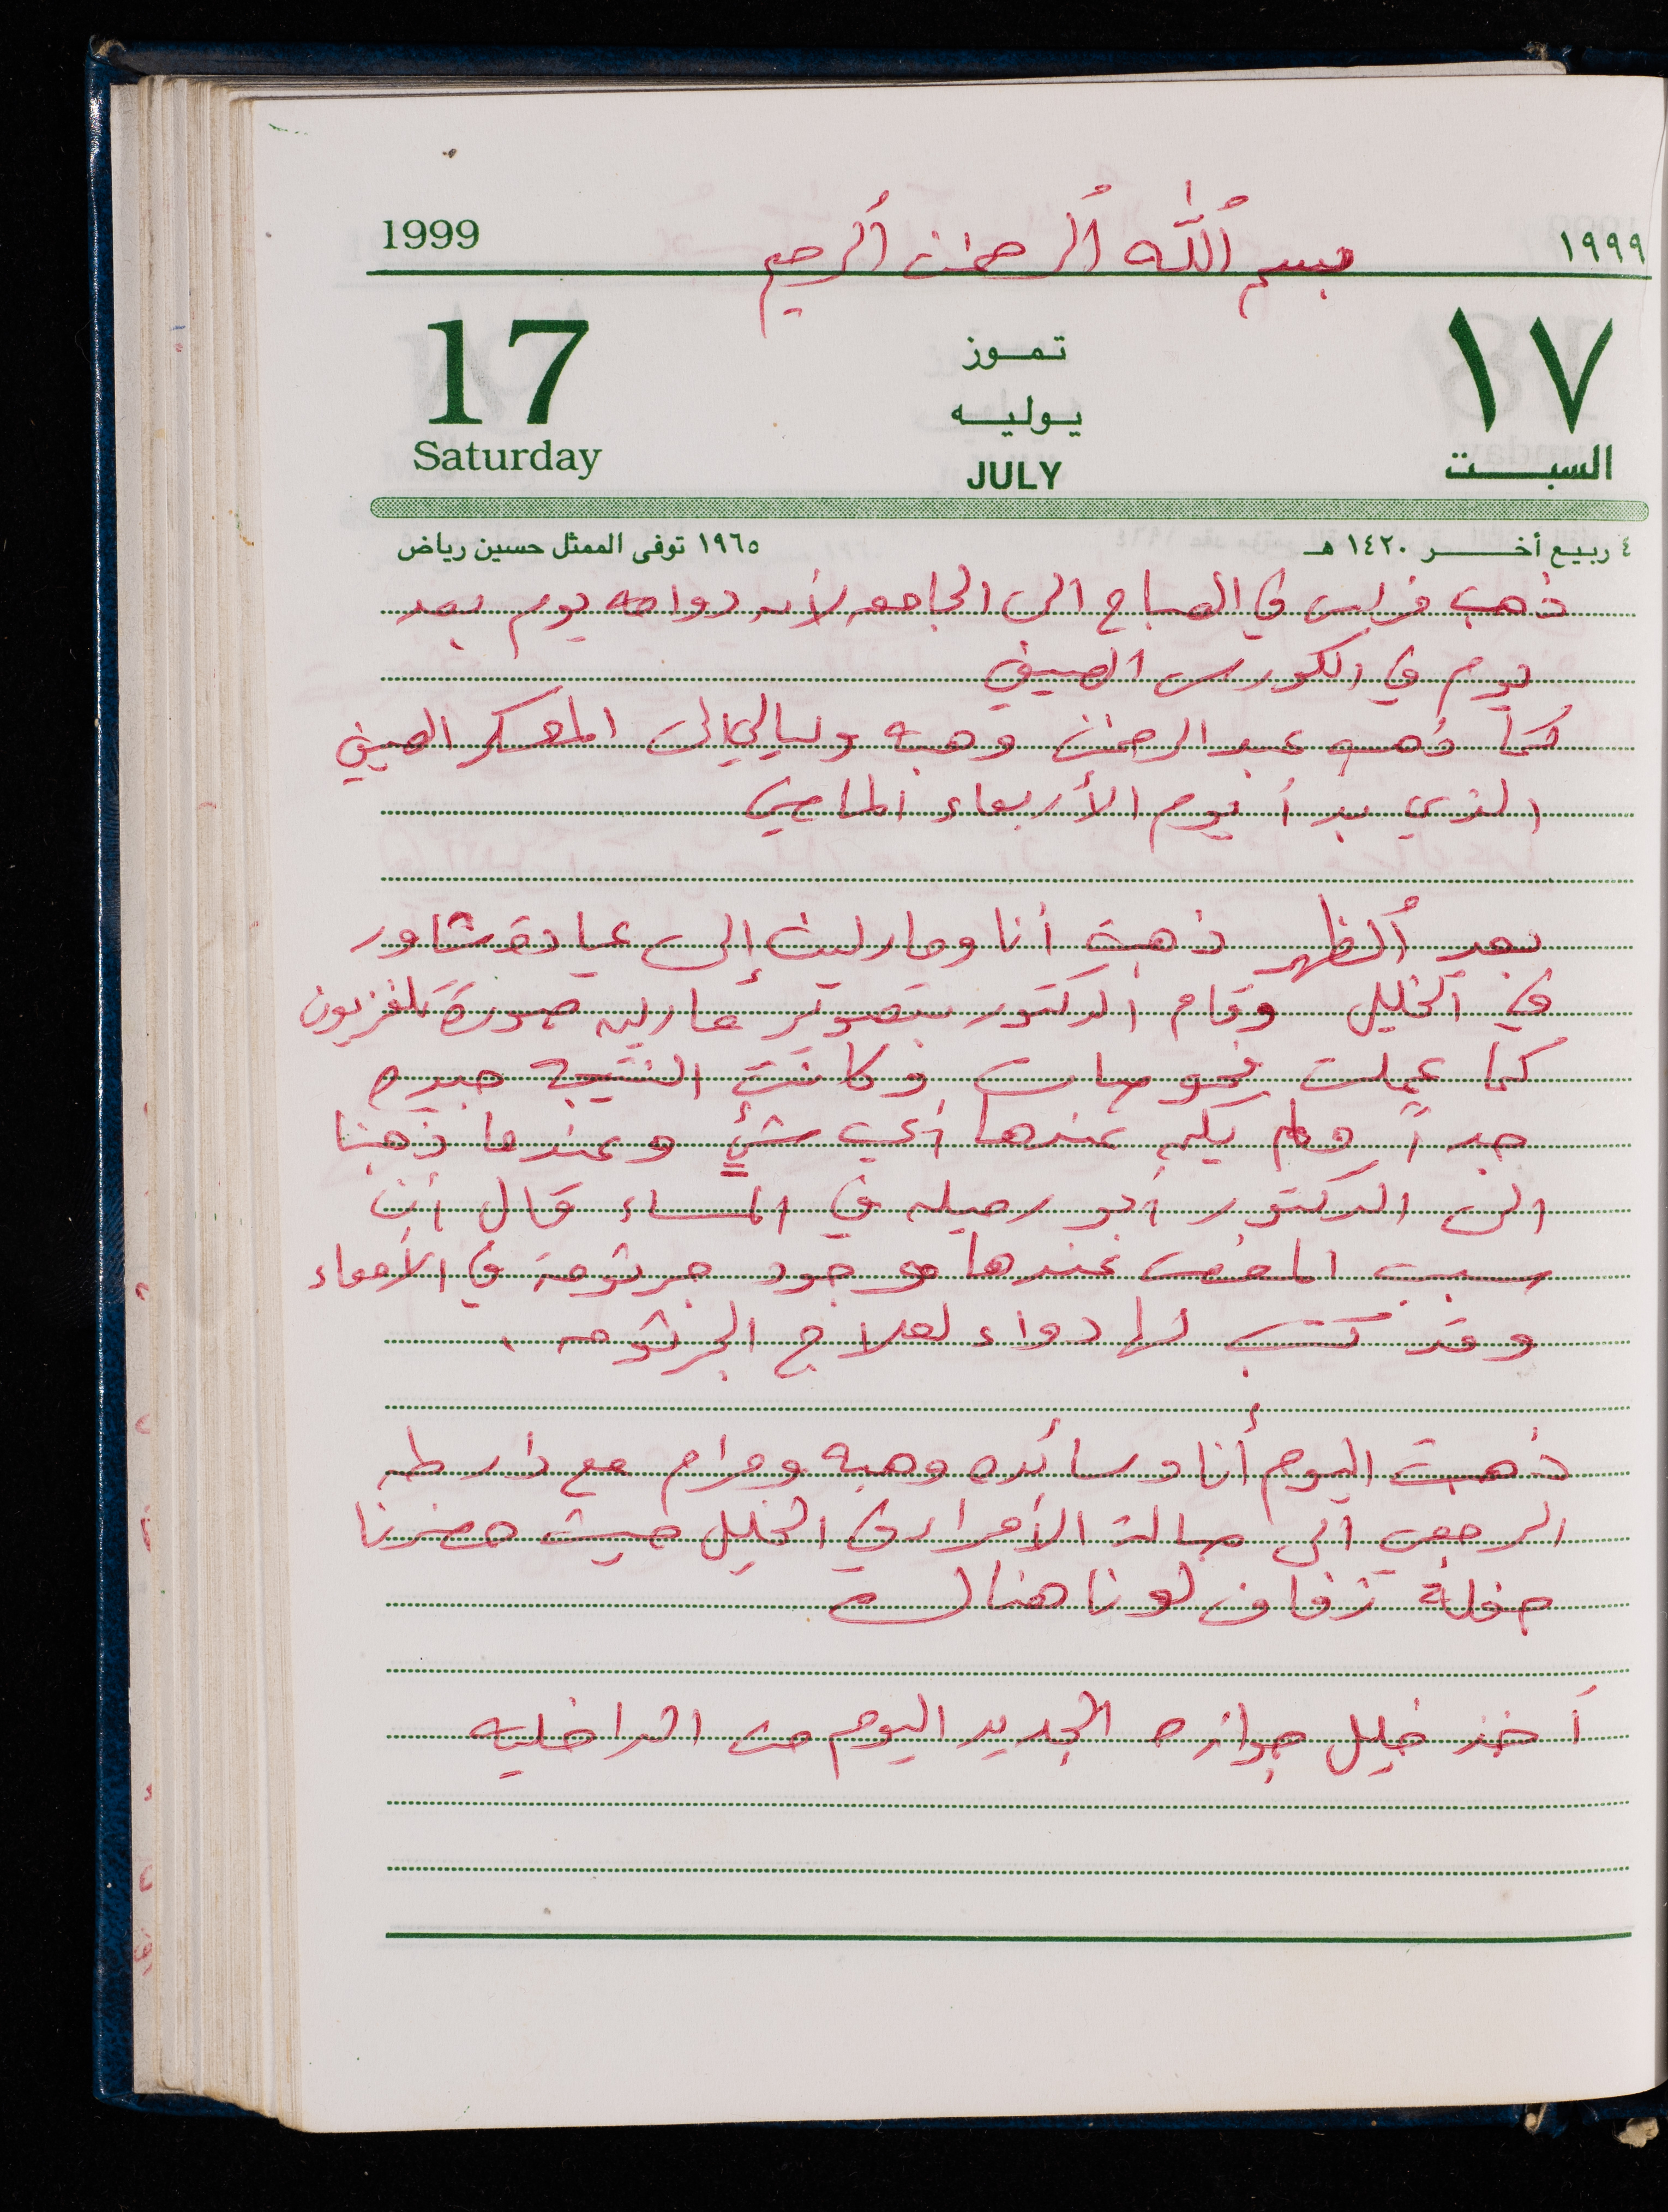 بسم الله الرحمن الرحيم
1999 ١٩٩٩
17 تموز ١٧
يوليه
Saturday JULY السبت
٤ ربيع أخر ١٤٢٠ هـ ١٩٦٥ توفى الممثل حسين رياض
ذهب فراس في الصباح الى الجامعه لأن دوامه يوم بعد
يوم في الكورس الصيفي
كما ذهب عبد الرحمن وهبه وليالي الى المعسكر الصيفي
الذي بدأ يوم الأربعاء الماضي
بعد الظهر ذهبت أنا ومارلين إلى عيادة شاور
في الخليل وقام الدكتور بتصوير مارلين صورة تلفزيون
كما عملت فحوصات وكانت النتيجة جيده
جداً ولم يكن عندها أي شئ وعندما ذهبنا
الى الدكتور أبو رميله في المساء قال أن
سبب المغص عندها وجود جرثومة في الأمعاء
وقد كتب لها دواء لعلاج الجرثومه .
ذهبت اليوم أنا وسائده وهبه ومرام مع دار طه
الرجعي الى صالة الأمراء في الخليل حيث حضرنا
حفلة زفاف لونا هناك
أخذ خليل جوازه الجديد اليوم من الداخليه